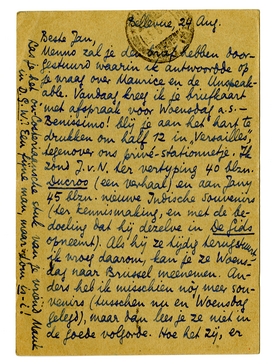 Bellevue, 24 Aug.
Beste Jan,
Menno zal je den brief hebben door-
gestuurd waarin ik antwoordde op
je vraag over Maurice en de Unspeak-
able. Vandaag kreeg ik je briefkaart
met afspraak voor Woensdag a.s. —
Benissimo! Blijf je aan 't hart te
drukken om half 12 in „Versailles",
tegenover ons privé-stationnetje. Ik
zond J.v.N. her vertyping 40 blzn.
Ducroo (een verhaal) en aan Jany
45 blzn. nieuwe Indische souvenirs
(ter kennismaking, en met de be-
doeling dat hij dezelve in De Gids
opneemt). Als hij ze tijdig terugstuurt
ik vroeg daarom, kan je ze Woens-
dag naar Brussel meenemen. An-
ders heb ik misschien nòg meer sou-
venirs (tusschen nu en Woensdag
gelegd), maar dan lees je ze niet in
de goede volgorde. Hoe het zij, er
Las je het stuk van je vriend
in D.G.W.! Een fijne man, maar dom